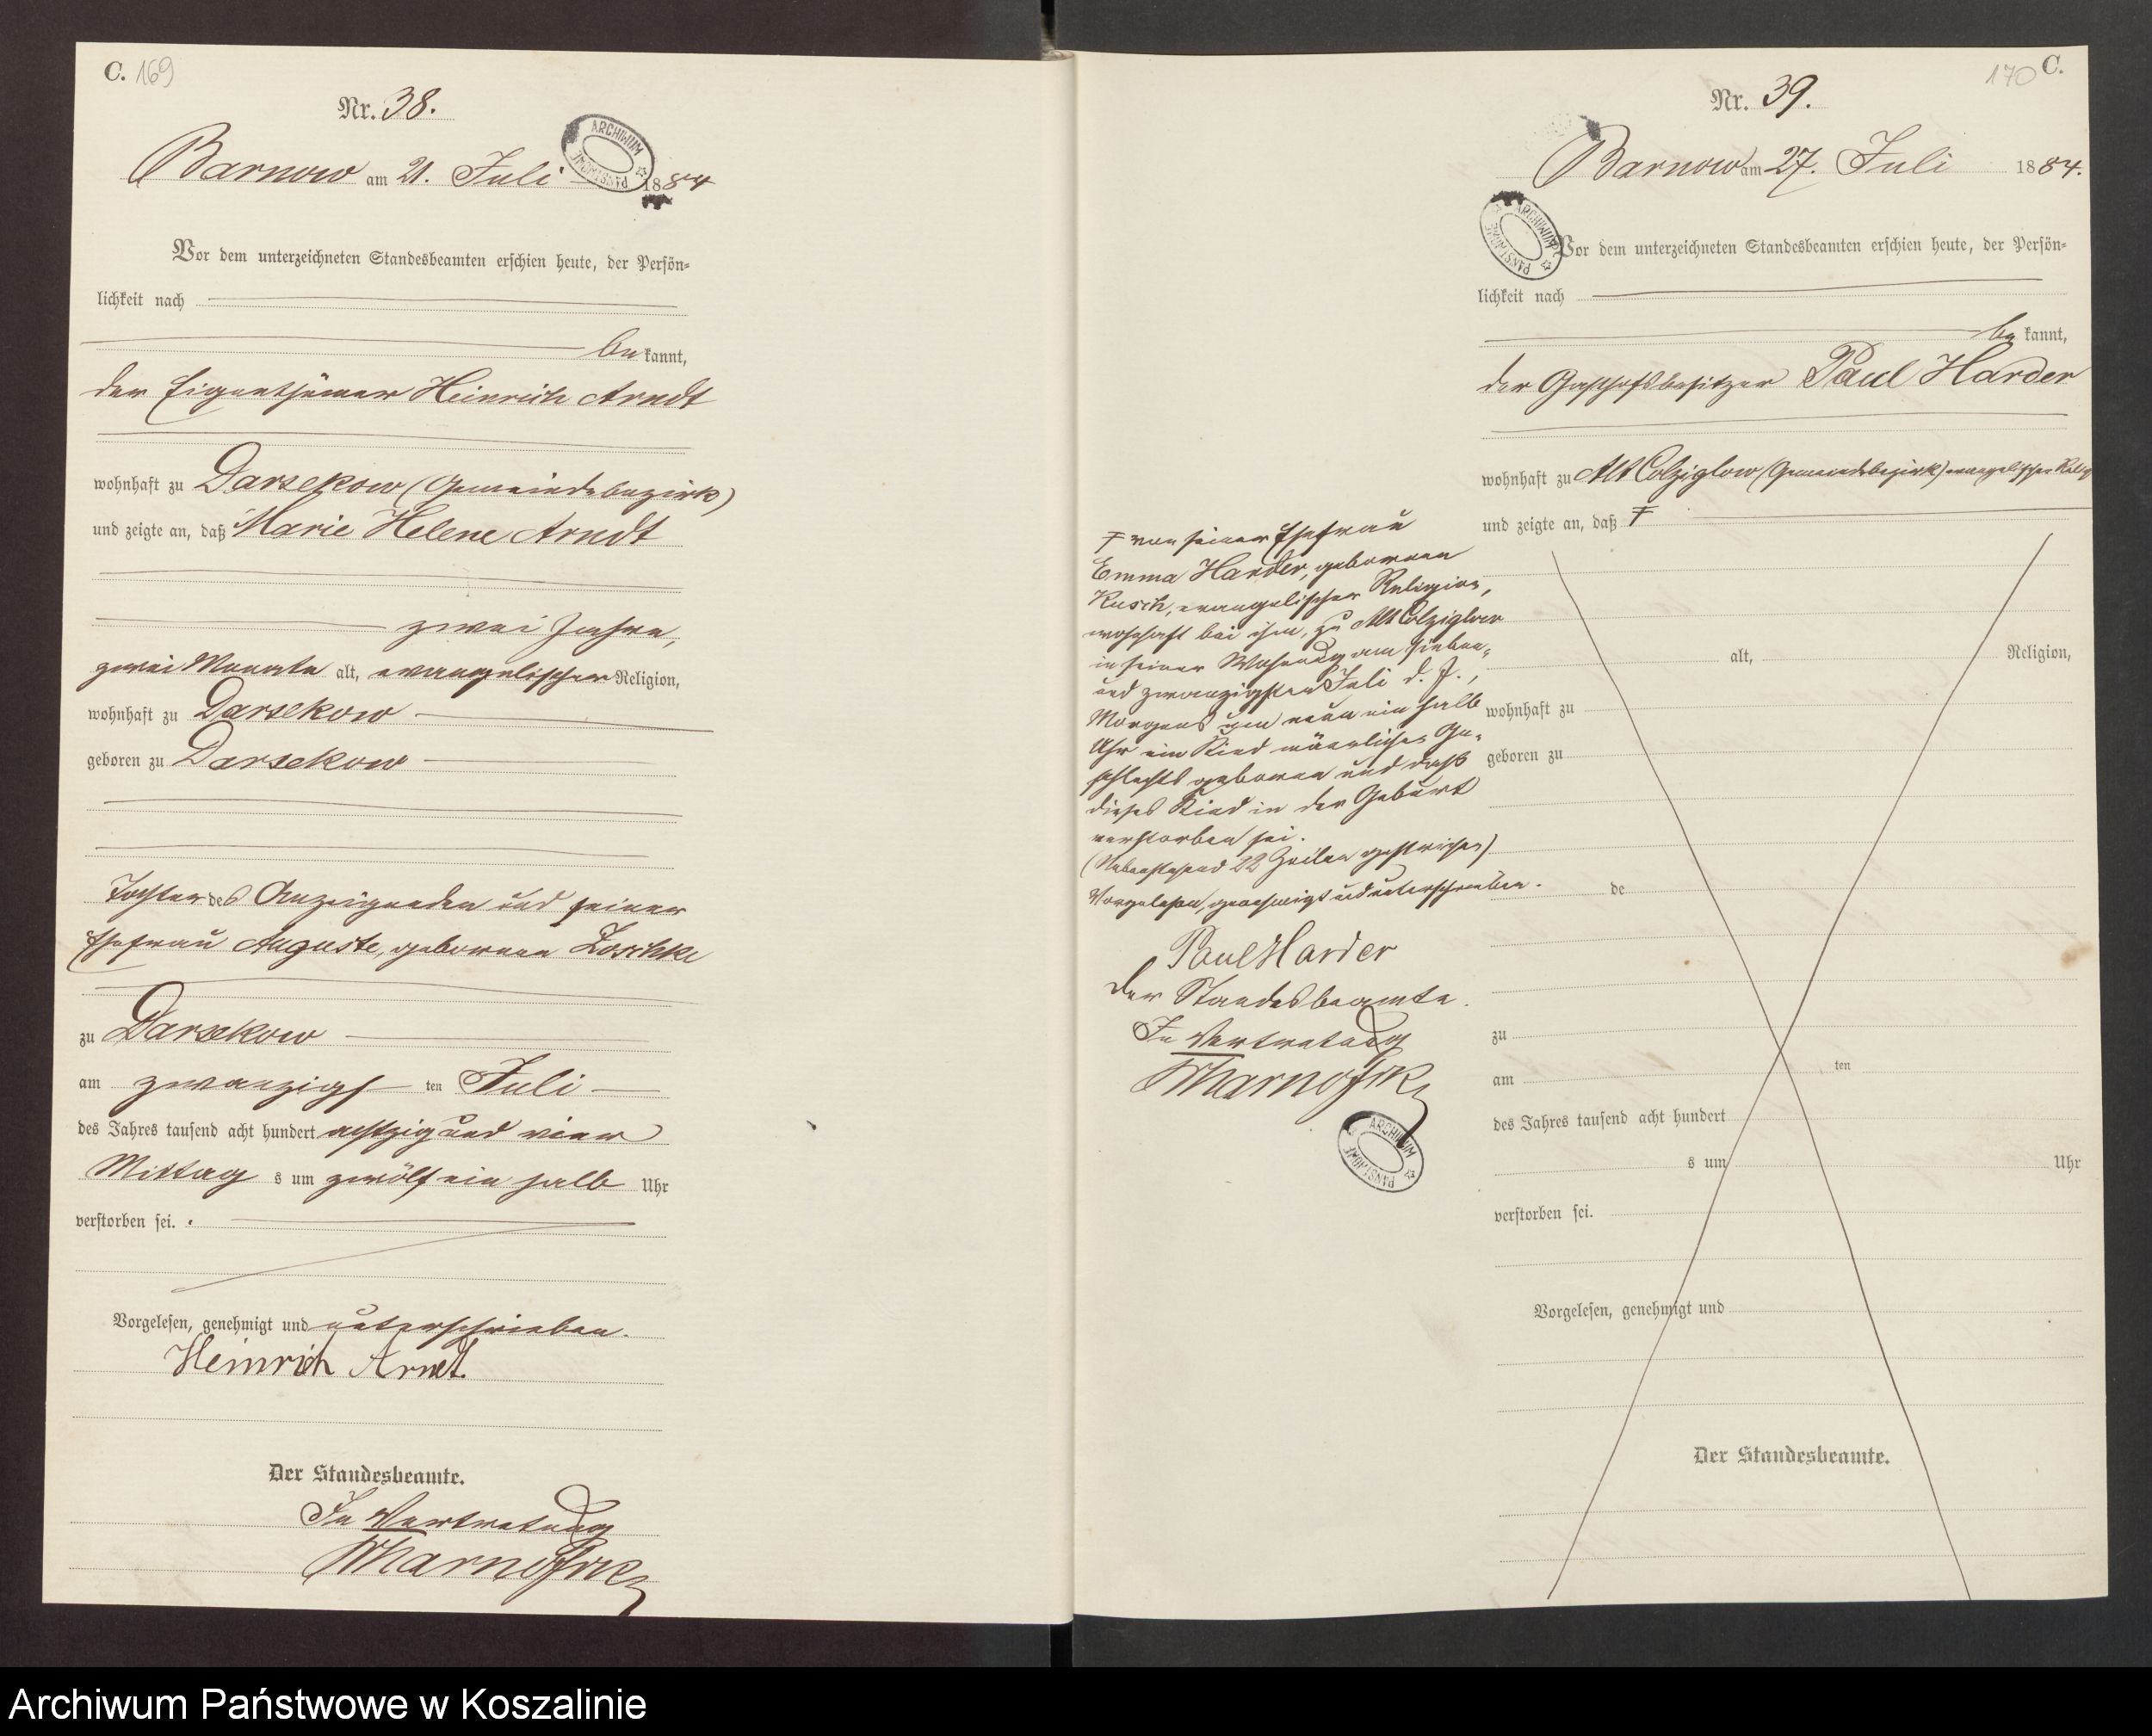 C. 169
Nr. 38.
Barnow am 21. Juli 1884
ARCHIWUM PAŃSTWOWE
Vor dem unterzeichneten Standesbeamten erschien heute, der Persön-
lichkeit nach
be kannt,
der Eigenthümer Heinrich Arndt
wohnhaft zu Darsekow (Gemeindebezirk)
und zeigte an, daß Marie Helene Arndt
zwei Jahre,
zwei Monate alt, evangelischer Religion,
wohnhaft zu Darsekow
geboren zu Darsekow
Tochter des Anzeigenden und seiner
Ehefrau Auguste, geborenen Loschke
zu Darsekow
am zwanzigs ten Juli
des Jahres tausend acht hundert achtzig und vier
Mittag s um zwölf ein halb Uhr
verstorben sei.
Vorgelesen, genehmigt und unterschrieben.
Heinrich Arndt.
Der Standesbeamte.
In Vertretung
170 C.
Nr. 39.
Barnow am 27. Juli 1884.
ARCHIWUM PAŃSTWOWE
Vor dem unterzeichneten Standesbeamten erschien heute, der Persön-
lichkeit nach
be kannt,
der Gasthofsbesitzer Paul Harder
wohnhaft zu Alt Colziglow (Gemeindebezirk) evangelischer Relig
und zeigte an, daß F
alt, Religion,
wohnhaft zu
geboren zu
de
zu
am ten
des Jahres tausend acht hundert
s um Uhr
verstorben sei.
Vorgelesen, genehmigt und
Der Standesbeamte.
F von seiner Ehefrau
Emma Harder, geborenen
Kusch, evangelischer Religion,
wohnhaft bei ihm, zu Alt Colziglow
in seiner Wohnung am sieben-
und zwanzigsten Juli d. J.,
Morgens um neun ein halb
Uhr ein Kind männlichen Ge-
schlechts geboren und daß
dieses Kind in der Geburt
verstorben sei.
(Nebenstehend 22 Zeilen gestrichen)
Vorgelesen, genehmigt und unterschrieben.
Paul Harder
Der Standesbeamte.
In Vertretung
ARCHIWUM PAŃSTWOWE
Archiwum Państwowe w Koszalinie